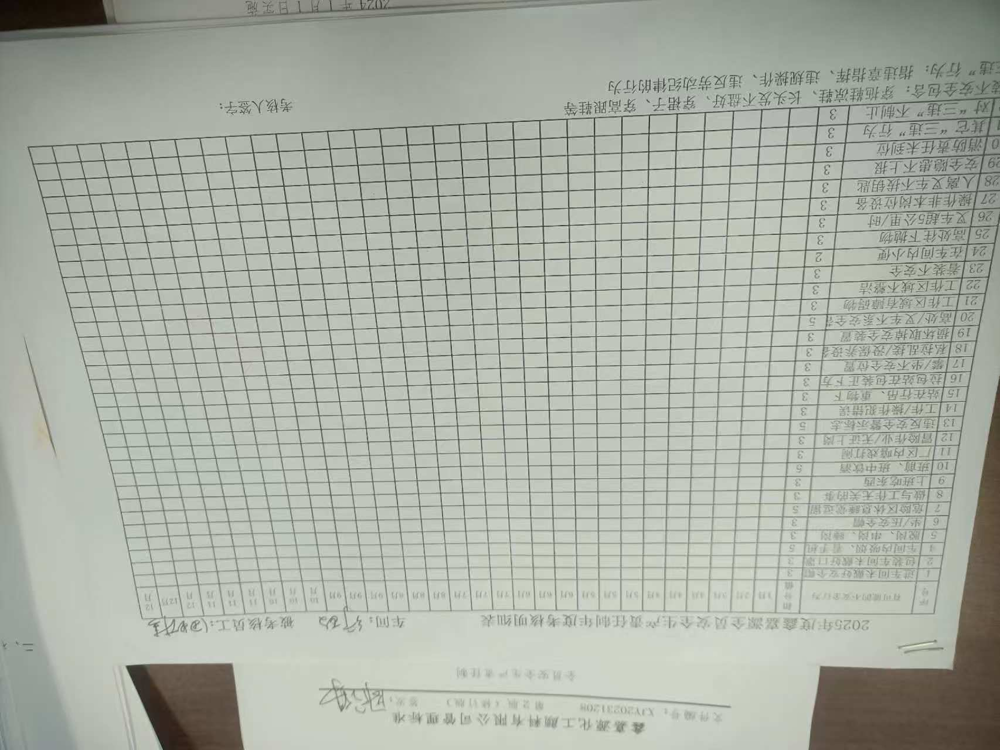 2025年度鑫嘉源全员安全生产责任制年度考核明细表
车间: 被考核员工:
序号 有可能的不安全行为 扣分值 1月 2月 3月 4月 5月 6月 7月 8月 9月 10月 11月 12月
1 进车间未戴好安全帽 3
2 包装车间未戴好口罩 3
4 车间内吸烟、看手机 5
5 脱岗、串岗、睡岗 3
6 坐/压安全帽 3
7 危险区休息睡觉逗留 5
8 做与工作无关的事 3
9 上班吃东西 3
10 班前、班中饮酒 5
11 厂区内嬉戏打闹 3
12 冒险作业/无证上岗 3
13 违反安全警示标志 5
14 工作/操作犯错误 3
15 站在行吊、重物下 3
16 拉包站在包装正下方 3
17 攀/坐不安全位置 3
18 私拉乱接/没保养设备 3
19 损坏取掉安全装置 3
20 高处/叉车不系安全带 5
21 工作区域有障碍物 3
22 工作区域不整洁 3
23 着装不安全 3
24 在车间内小便 2
25 高处往下抛物 3
26 叉车超5公里/时 3
27 操作非本岗位设备 3
28 人离叉车不拔钥匙 3
29 安全隐患不上报 3
30 消防责任未到位 3
其它“三违”行为 3
对“三违”不制止 3
不安全包含:穿拖鞋凉鞋、长头发不盘好、穿裙子、穿高跟鞋等
考核人签字:
三违”行为:指违章指挥、违规操作、违反劳动纪律的行为
鑫嘉源化工颜料有限公司管理标准
文件编号:XJY20231208 第2版(修订版) 签发:
全员安全生产责任制
2024年1月1日实施